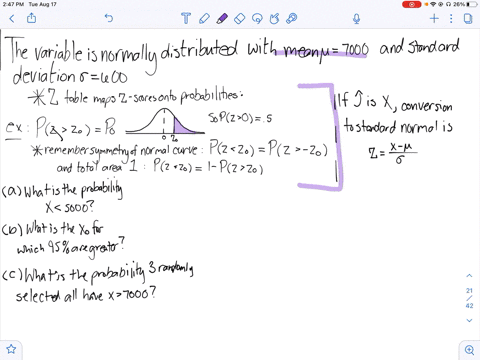 2:47 PM Tue Aug 17
26%
The variable is normally distributed with mean μ = 7000 and standard
deviation σ = 600
* Z table maps Z-scores onto probabilities:
ex: P(Z > Z₀) = P₀
0 Z₀
So P(Z>0) = .5
* remember symmetry of normal curve: P(Z < Z₀) = P(Z > -Z₀)
and total area 1: P(Z < Z₀) = 1 - P(Z > Z₀)
If is X, conversion
to standard normal is
Z = (x-μ)/σ
(a) What is the probability
X < 5000?
(b) What is the X₀ for
which 95% are greater?
(c) What is the probability 3 randomly
selected all have X > 7000?
21
/
42